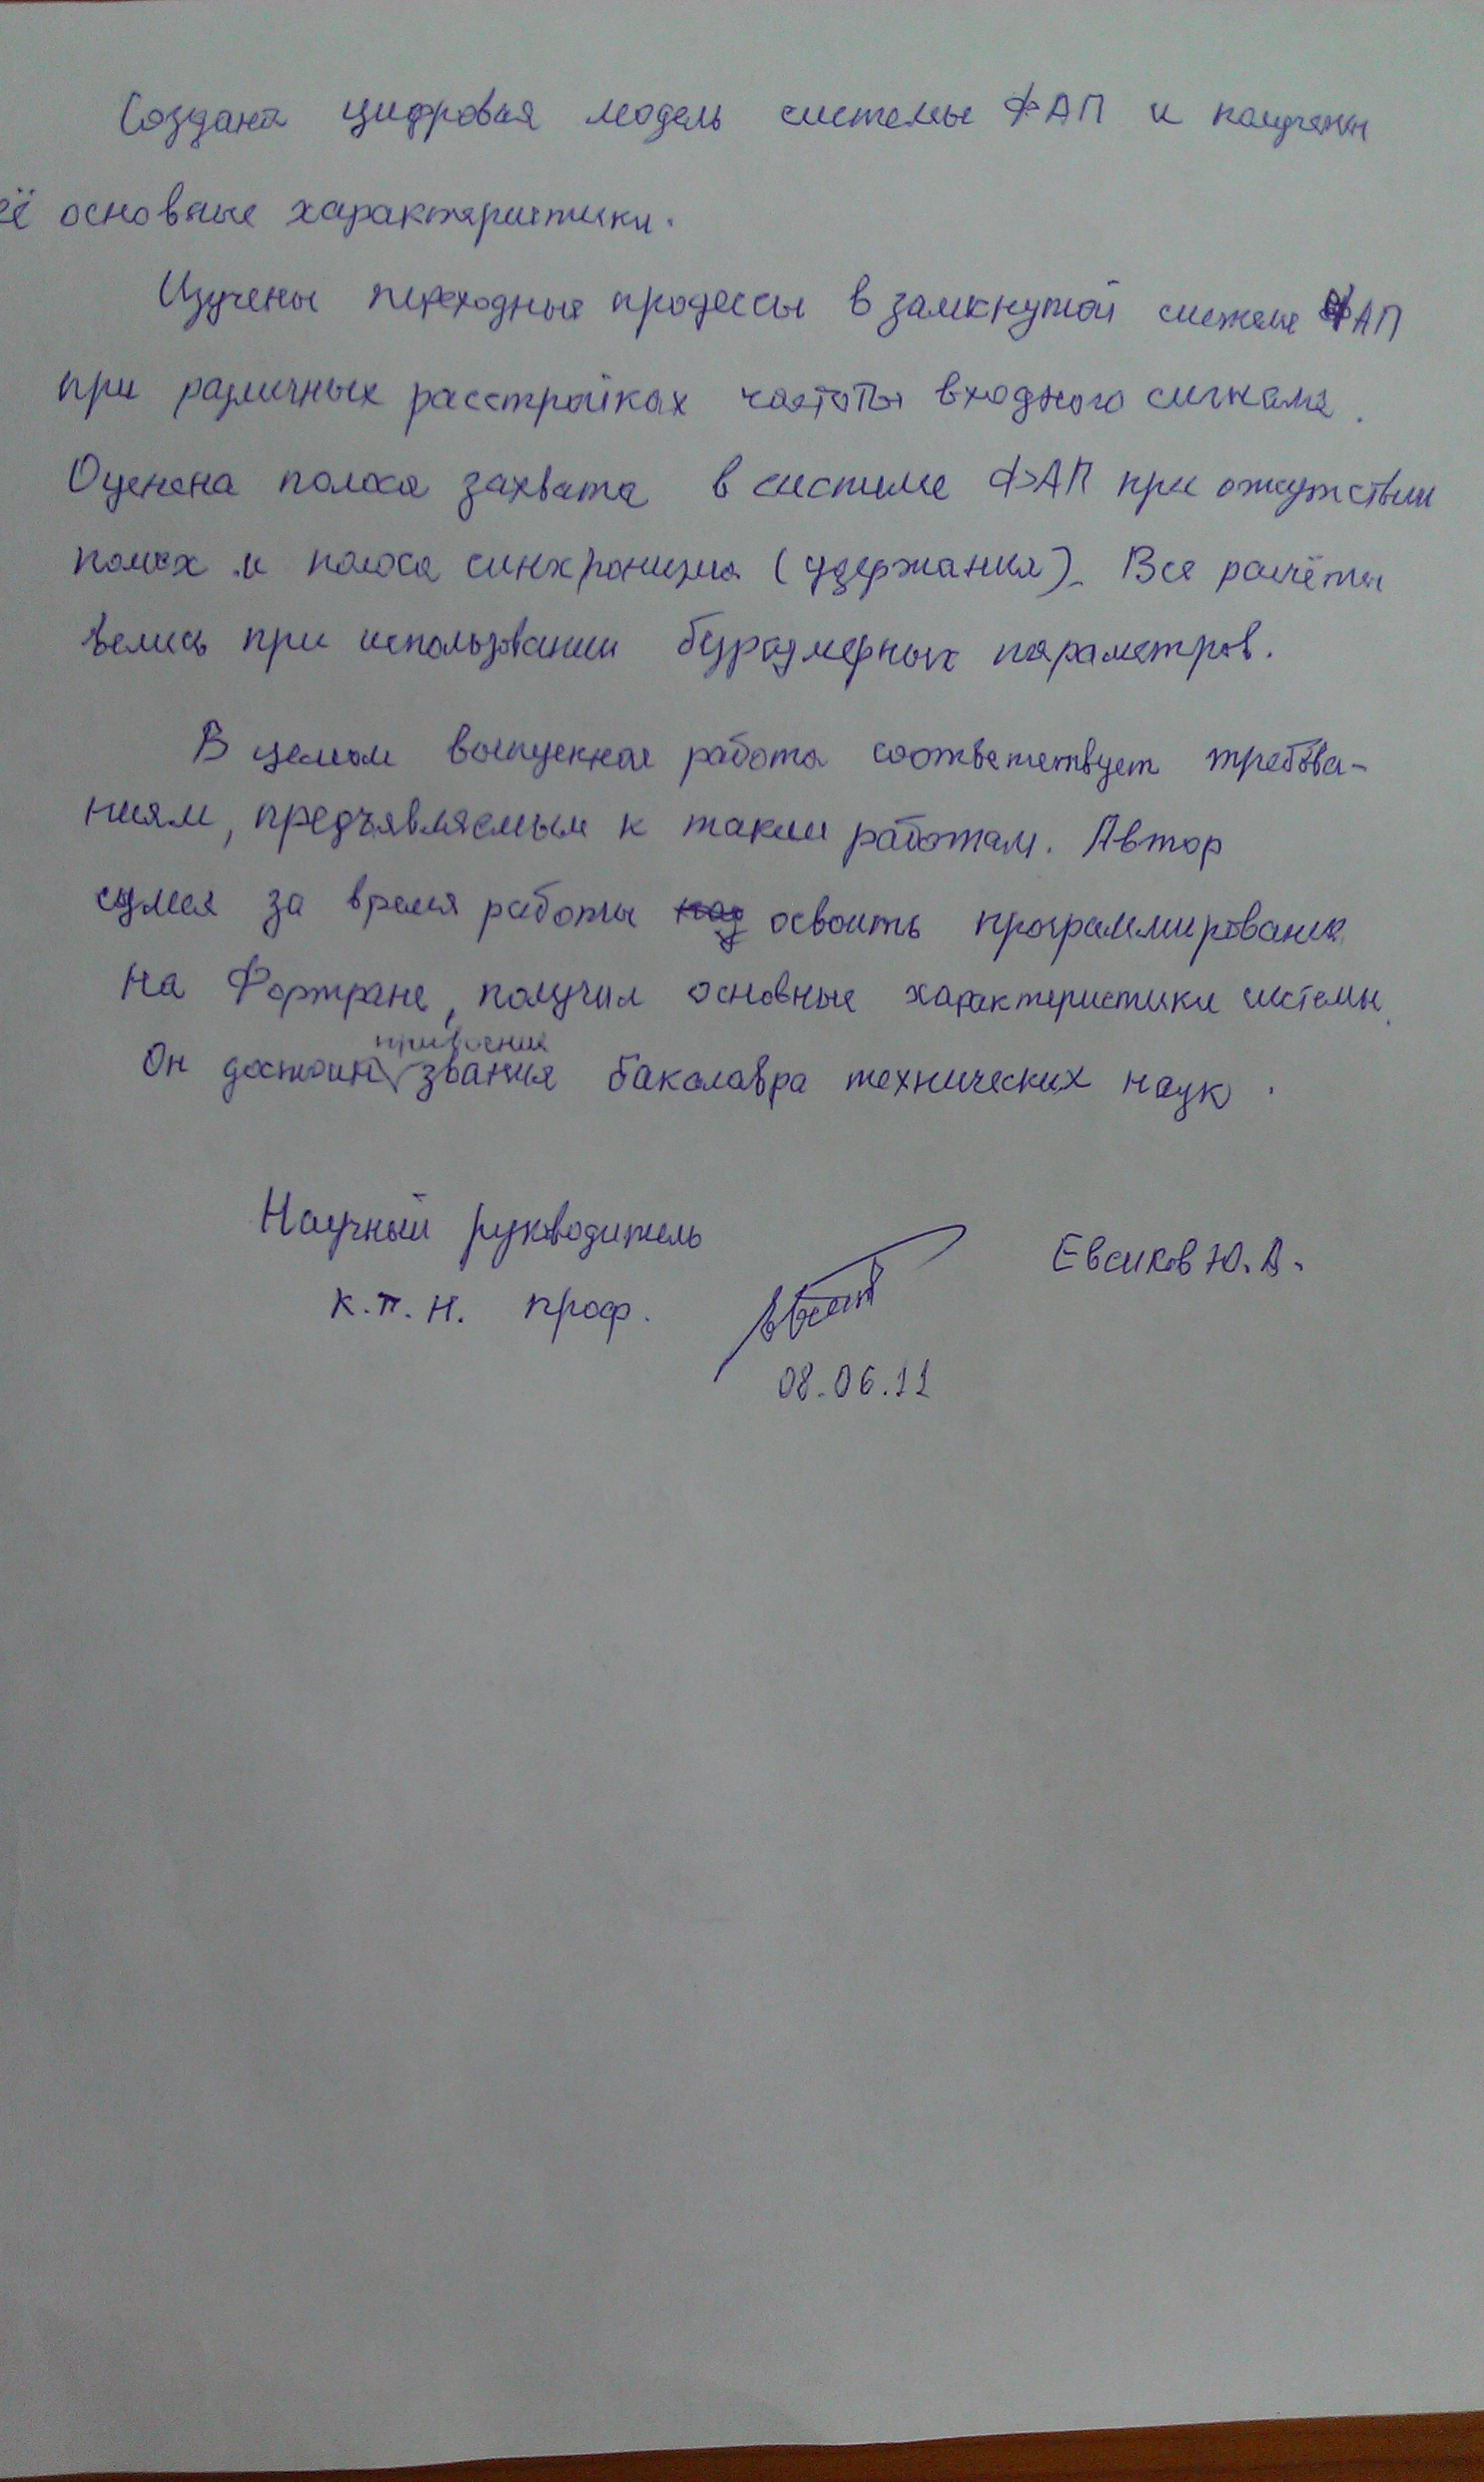 Создана цифровая модель системы ФАП и получены
её основные характеристики.
Изучены переходные процессы в замкнутой системе ФАП
при различных расстройках частоты входного сигнала.
Оценена полоса захвата в системе ФАП при отсутствии
помех и полоса синхронизма (удержания). Все расчёты
велись при использовании безразмерных параметров.
В целом выпускная работа соответствует требова-
ниям, предъявляемым к таким работам. Автор
сумел за время работы над освоить программирование
на Фортране, получил основные характеристики системы.
присвоения
Он достоин звания бакалавра технических наук.
Научный руководитель
Евсиков Ю.А.
к.т.н. проф.
08.06.11